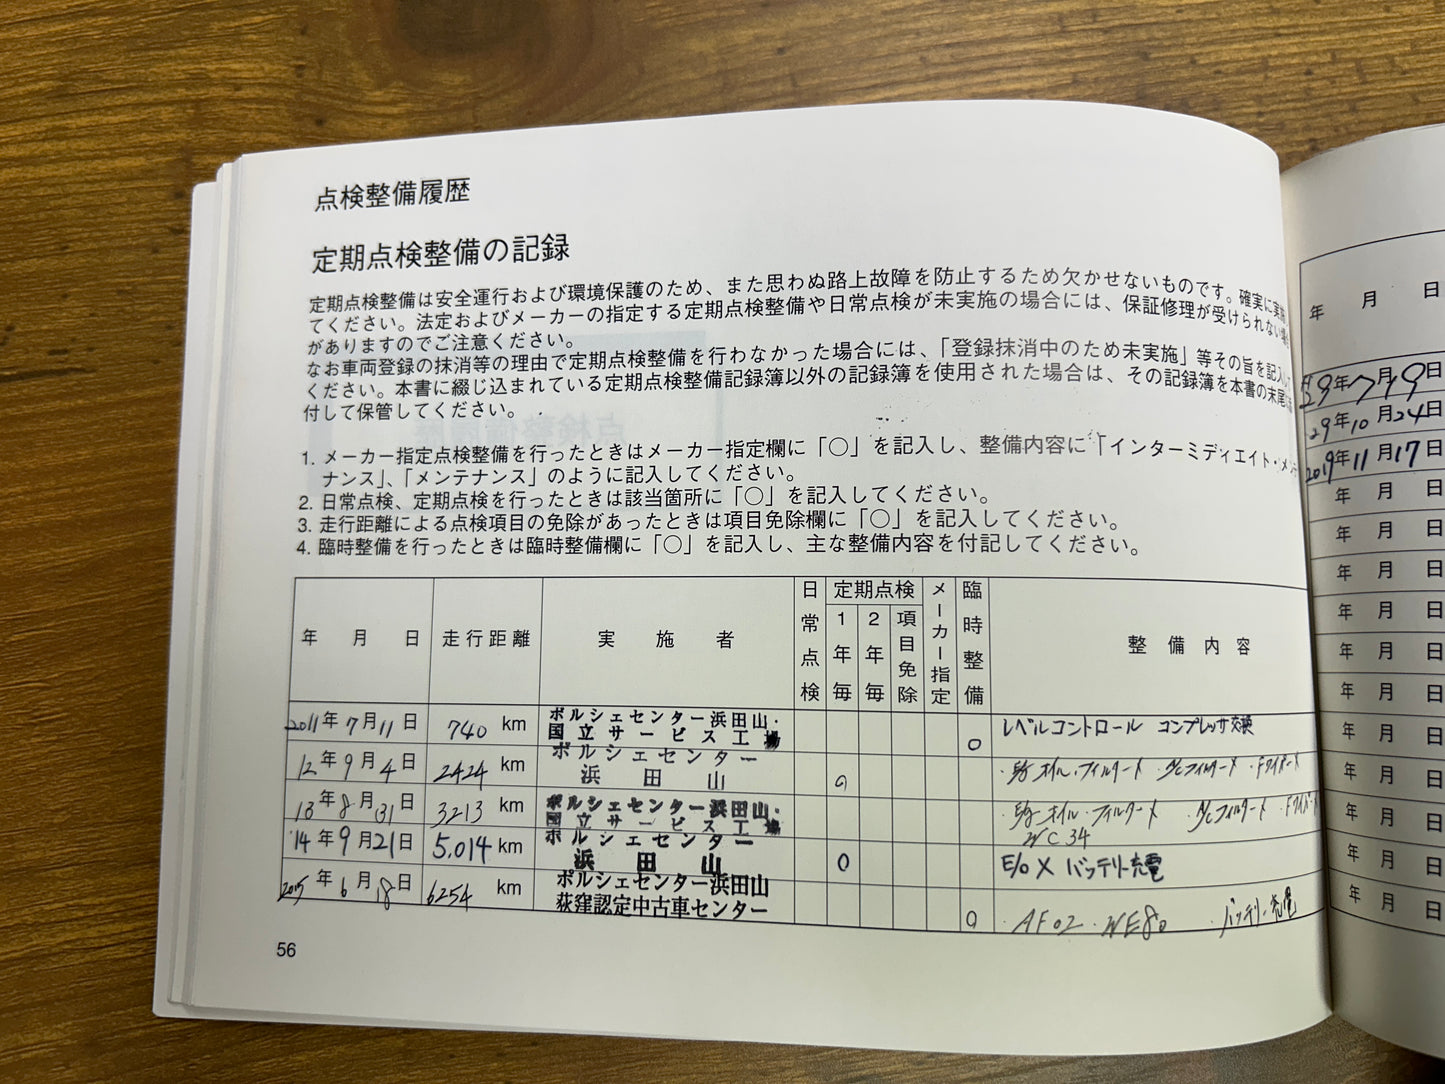 点検整備履歴
定期点検整備の記録
定期点検整備は安全運行および環境保護のため、また思わぬ路上故障を防止するため欠かせないものです。確実に実施し
てください。法定およびメーカーの指定する定期点検整備や日常点検が未実施の場合には、保証修理が受けられない場合
がありますのでご注意ください。
なお車両登録の抹消等の理由で定期点検整備を行わなかった場合には、「登録抹消中のため未実施」等その旨を記入して
ください。本書に綴じ込まれている定期点検整備記録簿以外の記録簿を使用された場合は、その記録簿を本書の末尾に
付して保管してください。
1. メーカー指定点検整備を行ったときはメーカー指定欄に「〇」を記入し、整備内容に「インターミディエイト・メンテ
ナンス」、「メンテナンス」のように記入してください。
2. 日常点検、定期点検を行ったときは該当箇所に「〇」を記入してください。
3. 走行距離による点検項目の免除があったときは項目免除欄に「〇」を記入してください。
4. 臨時整備を行ったときは臨時整備欄に「〇」を記入し、主な整備内容を付記してください。
年 月 日 走行距離 実施者 日常点検 定期点検 1年毎 2年毎 項目免除 メーカー指定 臨時整備 整備内容
2011年7月11日 740 km ポルシェセンター浜田山・ 〇 レベルコントロール コンプレッサ交換
国立サービス工場
12年9月4日 2424 km ポルシェセンター 〇
浜田山
13年8月31日 3213 km ポルシェセンター浜田山・
国立サービス工場 WC 34
'14年9月21日 5,014 km ポルシェセンター 〇 E/O X バッテリー充電
浜田山
2015年6月18日 6254 km ポルシェセンター浜田山 〇 AF02・WE80 ・バッテリー充電
荻窪認定中古車センター
56
年 月 日
29年7月19日
29年10月24日
2019年11月17日
年 月 日
年 月 日
年 月 日
年 月 日
年 月 日
年 月 日
年 月 日
年 月 日
年 月 日
年 月 日
年 月 日